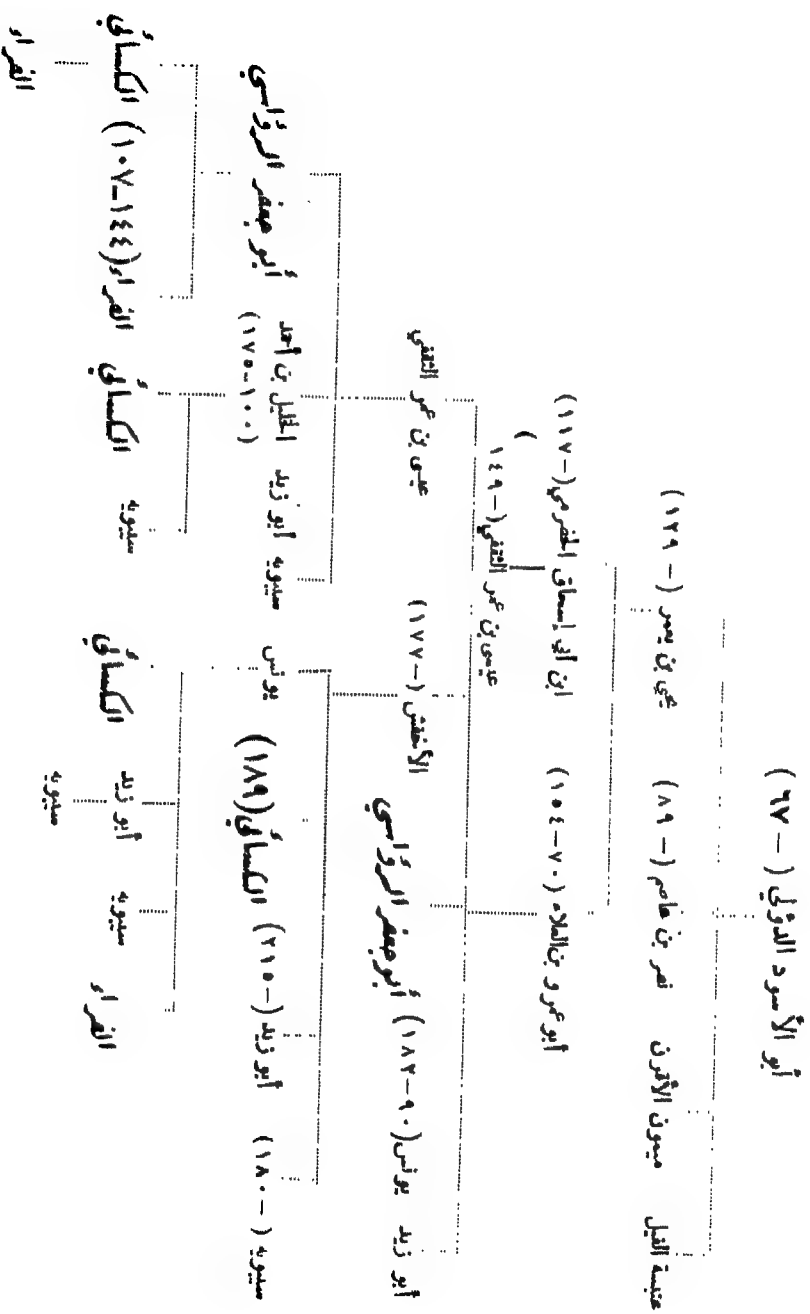 أبو الأسود الدؤلي ( – ٦٧)
عنبسة الفيل ميمون الأقرن نصر بن عاصم ( – ٨٩) يحيى بن يعمر ( – ١٢٩)
أبو عمرو بن العلاء (٧٠–١٥٤) ابن أبي إسحاق الحضرمي ( – ١١٧)
عيسى بن عمر الثقفي ( – ١٤٩
)
أبو زيد يونس (٩٠–١٨٢) أبو جعفر الرؤاسي الأخفش ( – ١٧٧) عيسى بن عمر الثقفي
سيبويه ( – ١٨٠) أبو زيد ( – ٢١٥) الكسائي (١٨٩) يونس سيبويه أبو زيد الخليل بن أحمد أبو جعفر الرؤاسي
(١٠٠–١٧٥)
الفراء سيبويه أبو زيد الكسائي سيبويه الكسائي الفراء (١٤٤–١٠٧) الكسائي
سيبويه الفراء